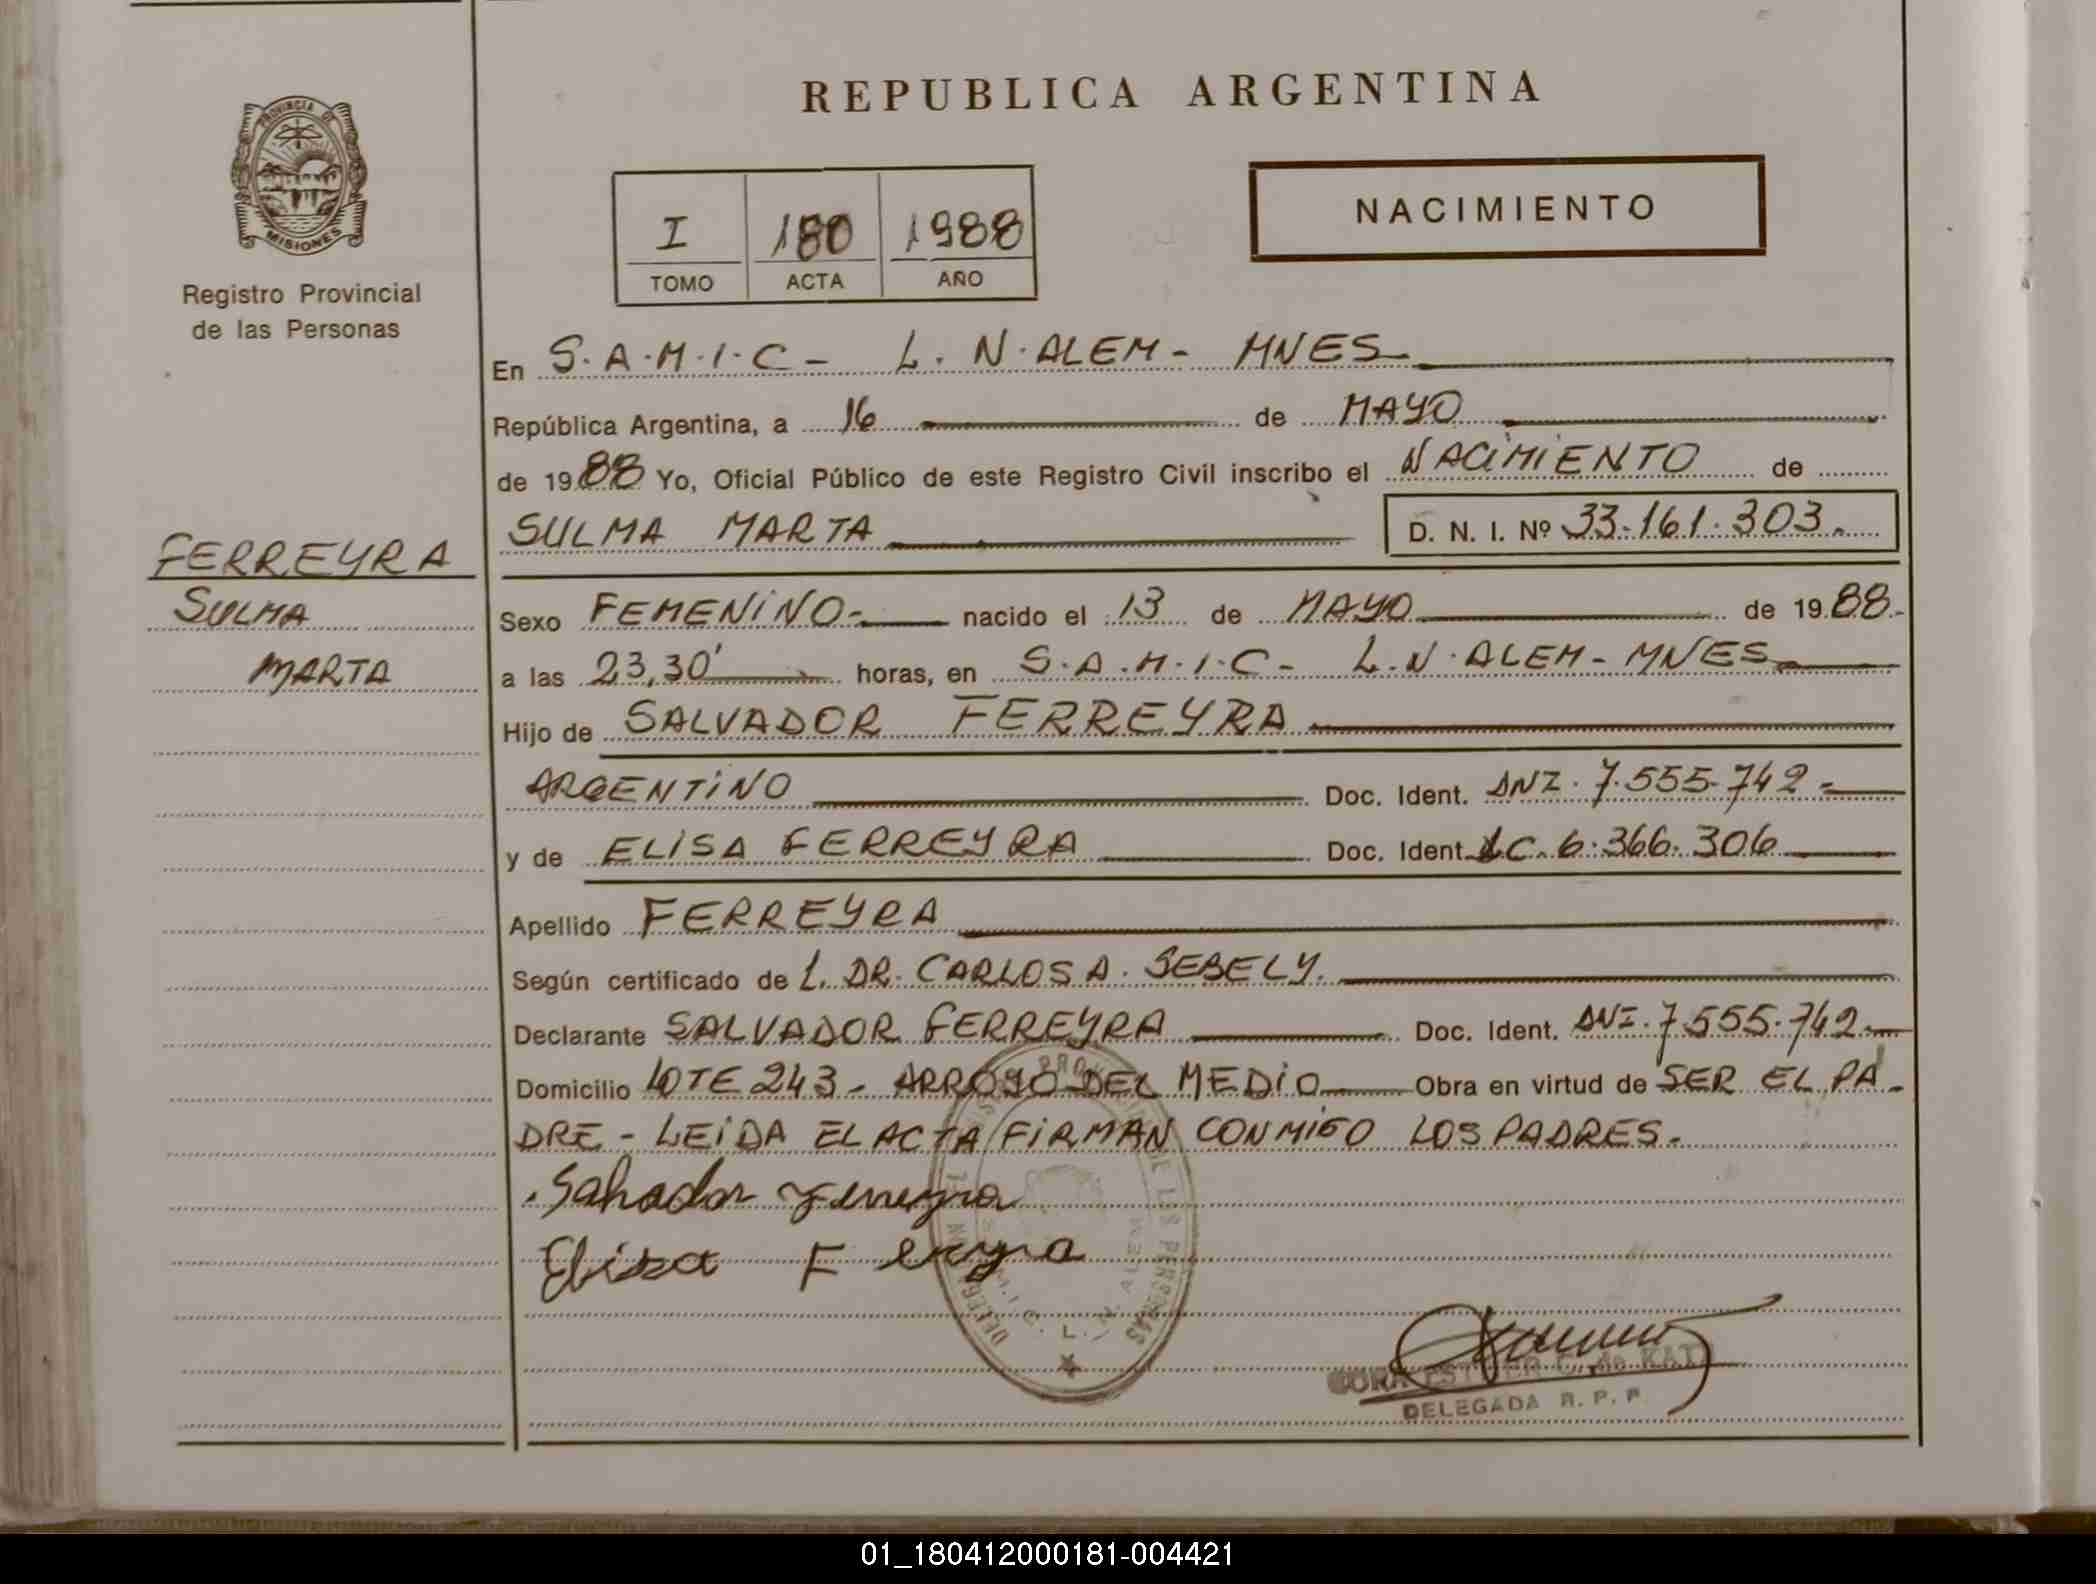 REPUBLICA ARGENTINA
PROVINCIA DE MISIONES
Registro Provincial
de las Personas
I 180 1988
TOMO ACTA AÑO
NACIMIENTO
En S.A.M.I.C - L. N. ALEM - MNES
República Argentina, a 16 de MAYO
de 1988 Yo, Oficial Público de este Registro Civil inscribo el NACIMIENTO de
SULMA MARTA D. N. I. Nº 33.161.303.
FERREYRA
SULMA
MARTA
Sexo FEMENINO.- nacido el 13 de MAYO de 1988.-
a las 23,30' horas, en S.A.M.I.C- L.N. ALEM - MNES
Hijo de SALVADOR FERREYRA
ARGENTINO Doc. Ident. DNI. 7.555.742.-
y de ELISA FERREYRA Doc. Ident. LC. 6.366.306
Apellido FERREYRA
Según certificado de L. DR. CARLOS A. SEBELY.
Declarante SALVADOR FERREYRA Doc. Ident. DNI. 7.555.742.-
Domicilio LOTE 243 - ARROYO DEL MEDIO Obra en virtud de SER EL PA-
DRE - LEIDA EL ACTA FIRMAN CONMIGO LOS PADRES.
Salvador Ferreyra
Elisa F ereyra
DE LAS PERSONAS
L. N. ALEM
ESTHER C. de
DELEGADA R. P. P.
01_180412000181-004421